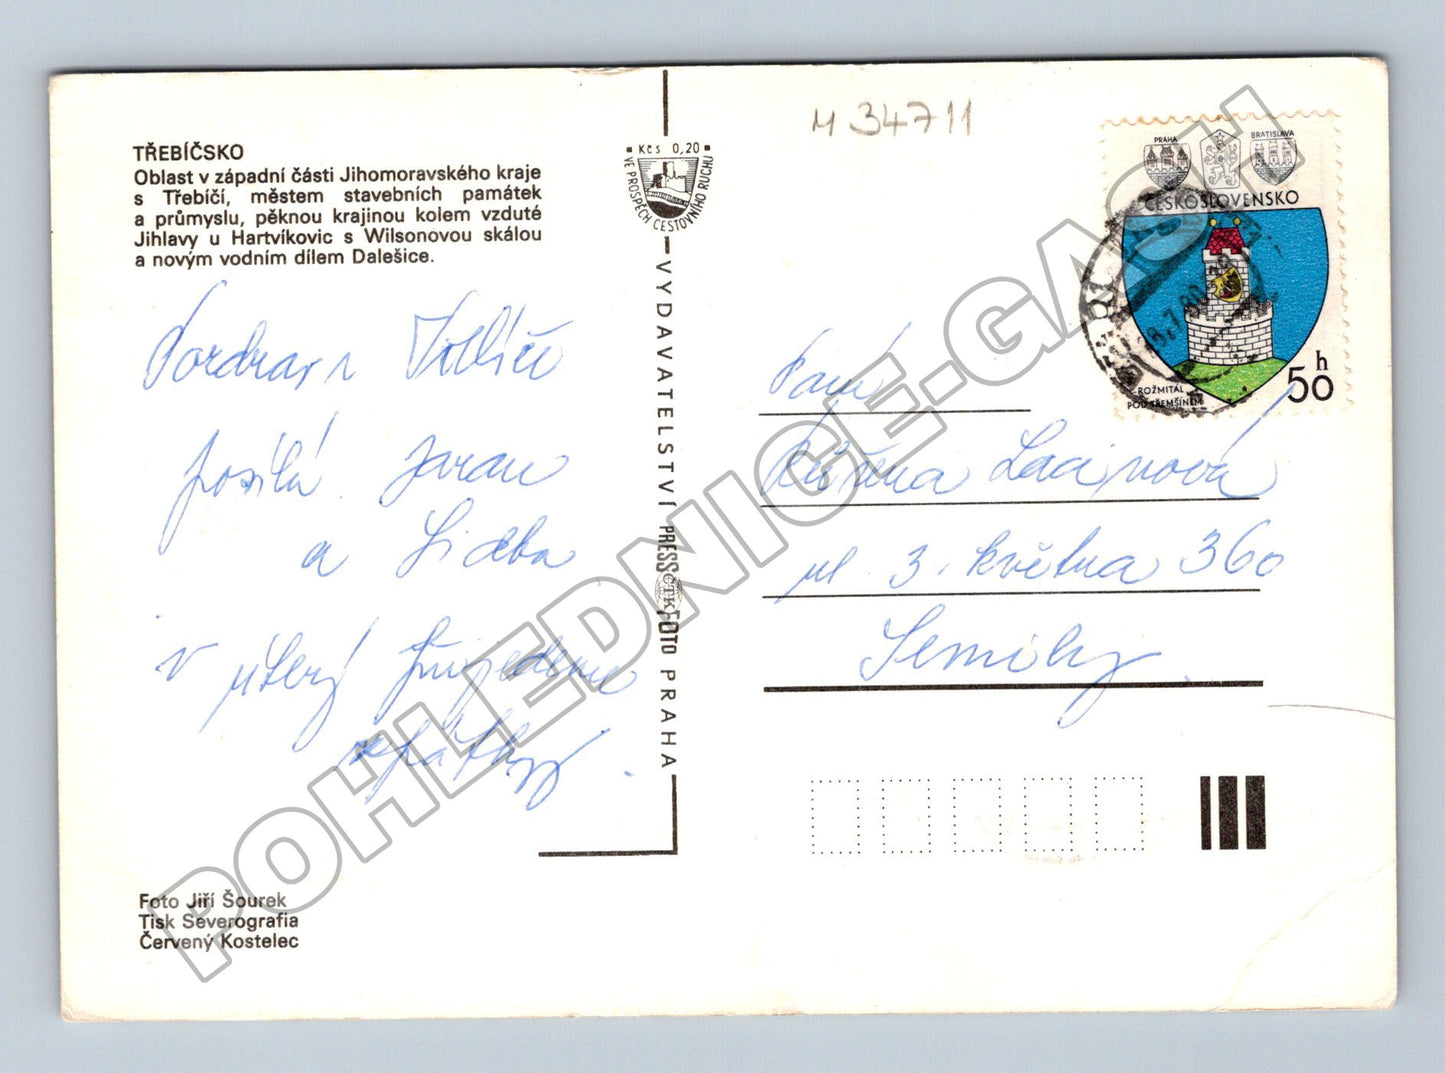 TŘEBÍČSKO
Oblast v západní části Jihomoravského kraje
s Třebíčí, městem stavebních památek
a průmyslu, pěknou krajinou kolem vzduté
Jihlavy u Hartvíkovic s Wilsonovou skálou
a novým vodním dílem Dalešice.
Pozdrav z Třebíče
posílá
a
v úterý přijedeme
zpátky.
Foto Jiří Šourek
Tisk Severografia
Červený Kostelec
Kčs 0,20
VE PROSPĚCH CESTOVNÍHO RUCHU
VYDAVATELSTVÍ PRESSFOTO PRAHA
ČTK
M 34711
PRAHA
BRATISLAVA
ČESKOSLOVENSKO
ROŽMITÁL
POD TŘEMŠÍNEM
50 h
Paní
Růžena Lacinová
ul. 3. května 360
Semily
POHLEDNICE-GASH